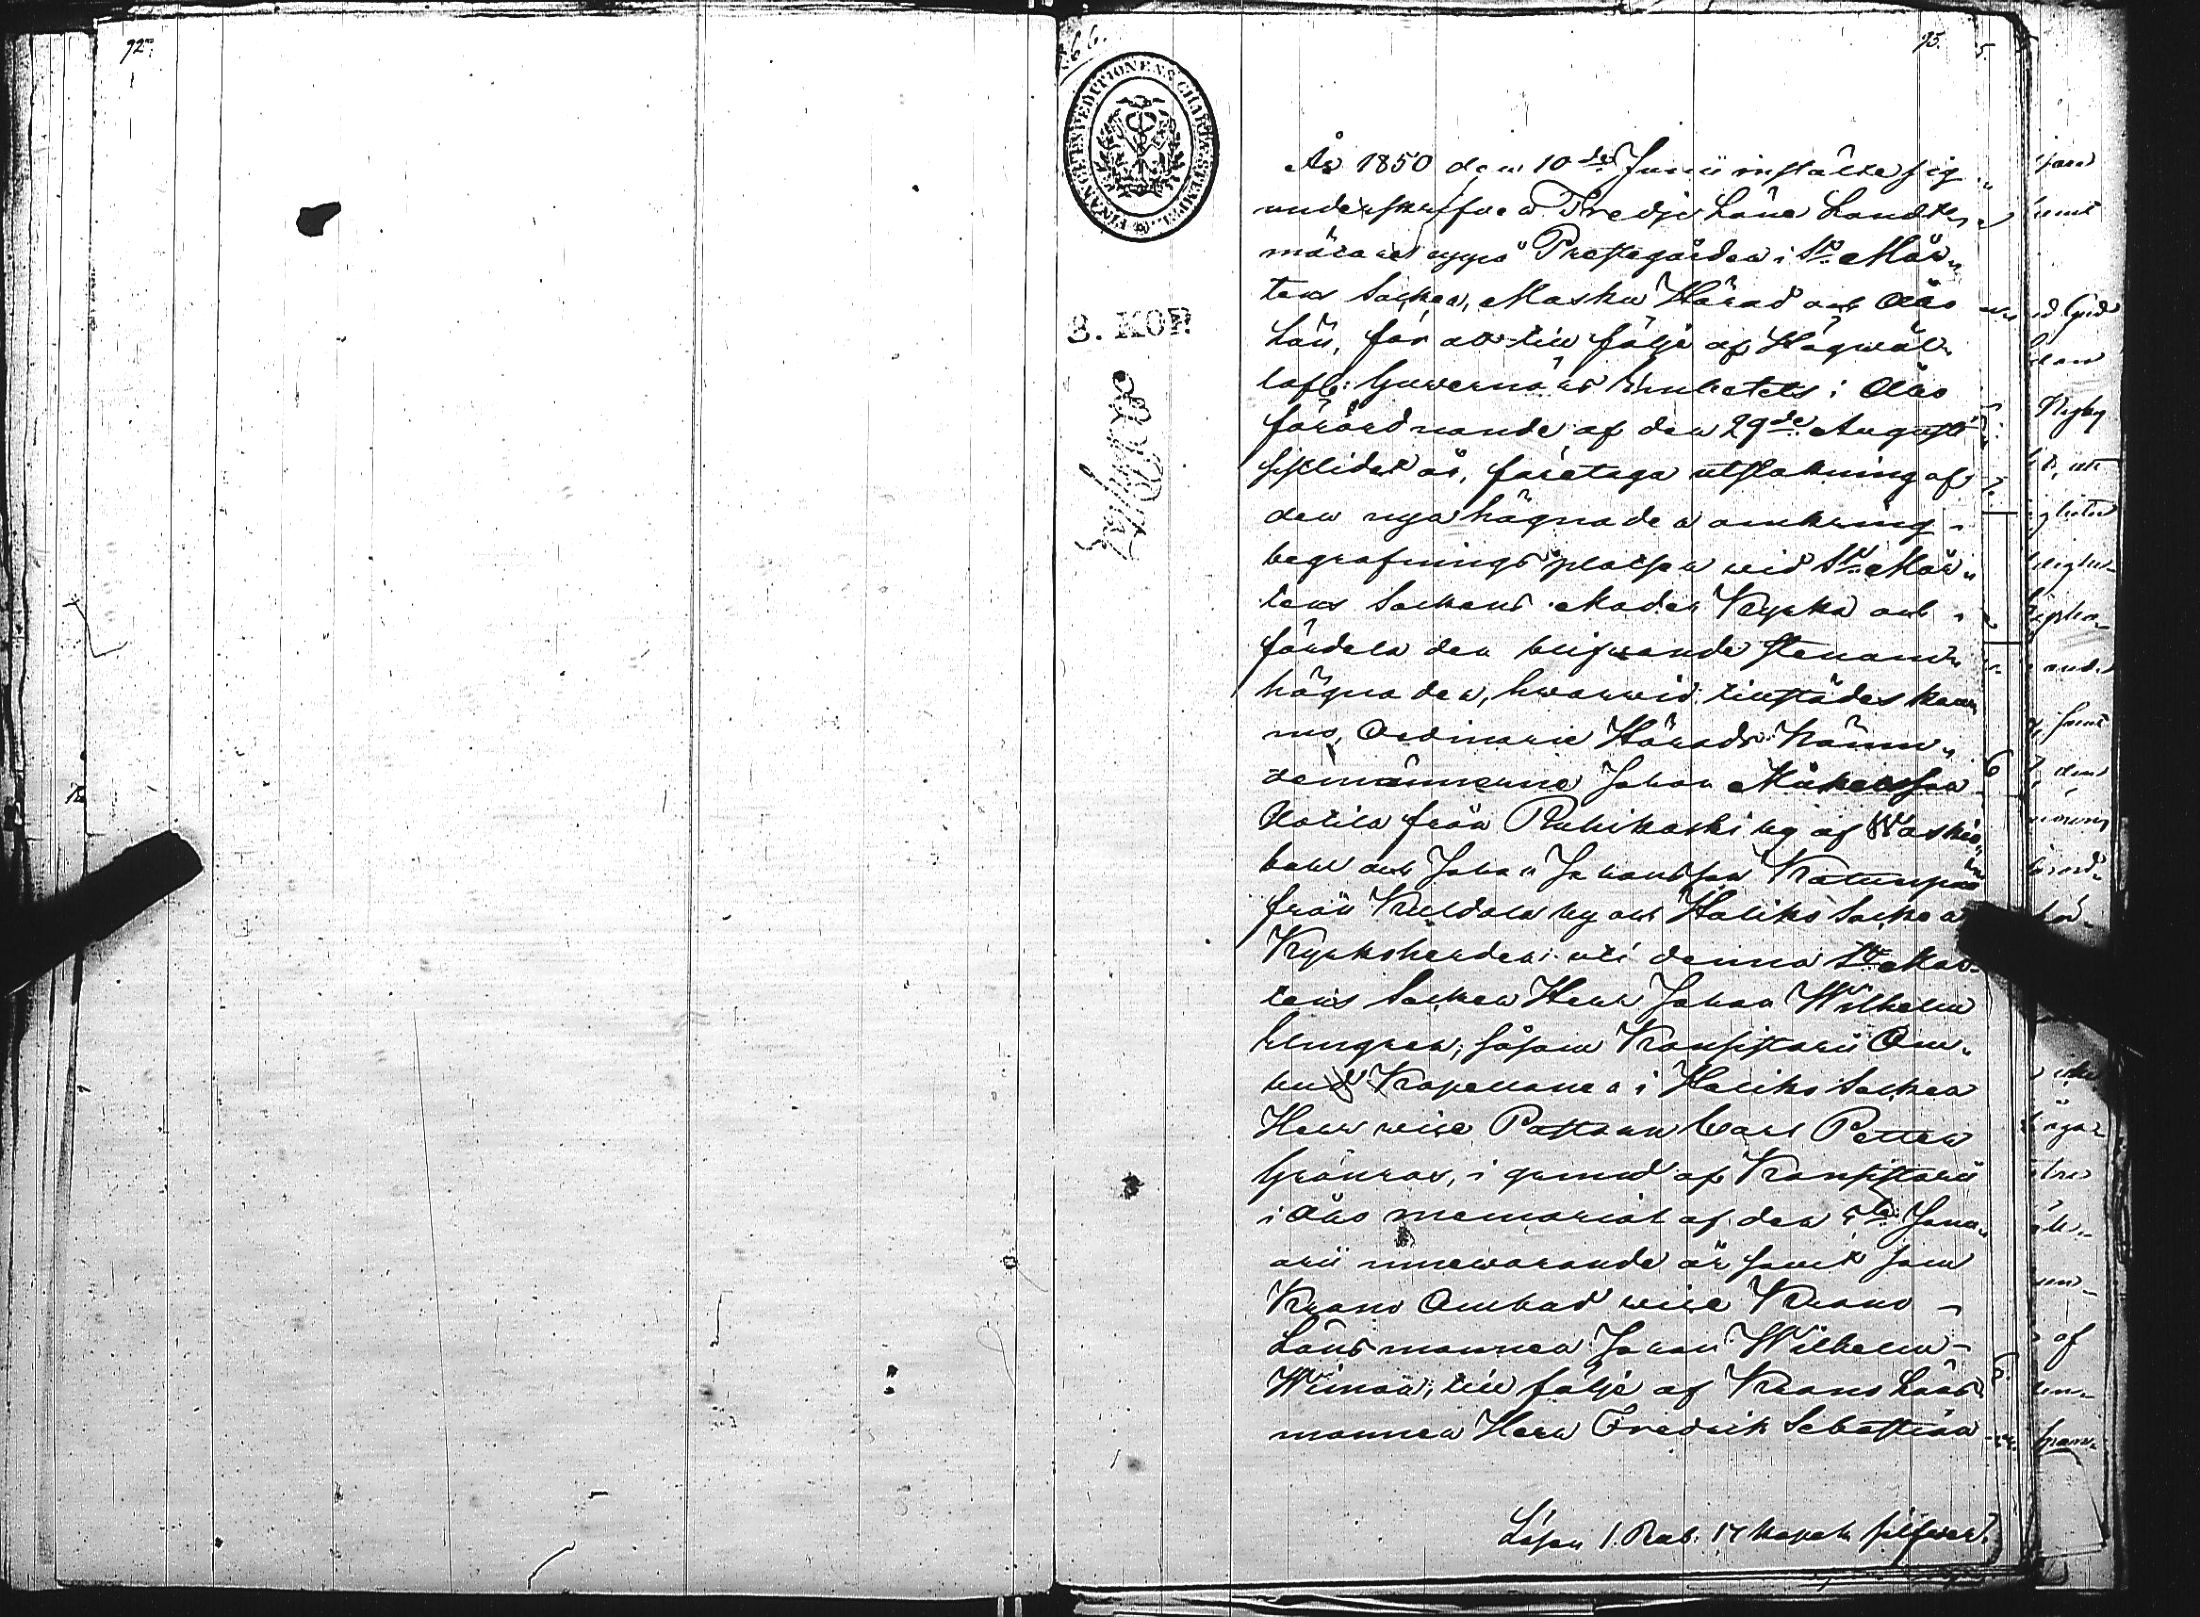 92.
95.
FINANCE EXPEDITIONENS CHARTÆ STEMPEL
3. KOP.
År 1850 den 10de Junii instälte sig
underskrifven Tredje Läne Landt„
mätare uppå Prestegården i St. Mår„
tens Socken, Masku Härad och Åbo
Län, för att till följe af Högwäl„
lofl: Guvernörs Embetets i Åbo
förordnande af den 29de Augusti
sistlidet år, företaga utstakning af
den nya hägnaden omkring
begrafningsplatsen wid St. Mår„
tens Sockens Moder Kyrka och
fördela den blifwande Stenom„
hägnaden, hwarwid tillstädes kom„
mo, Ordinarie Härads Nämn„
demännerne Johan Mickelsson
Uotila från Ruhikoski by af
och Johan Johansson
från Kuldala by och Haliko Socken
Kyrkoherden uti denna St. Mår„
tens Socken Herr Johan Wilhelm
Elmgren, såsom Konsistorii Om„
bud Kapellanen i Haliko Socken
Herr vice Pastorn Carl Petter
Grönroos, i grund af Konsistorii
i Åbo memorial af den Janu„
arii innewarande år samt som
Krono Ombud vice Krono
Länsmannen Johan Wilhelm
till följe af Krono Läns„
mannen Herr Fredrik Sebastian
Lösen 1 Rub. 17 kopek silfwer.